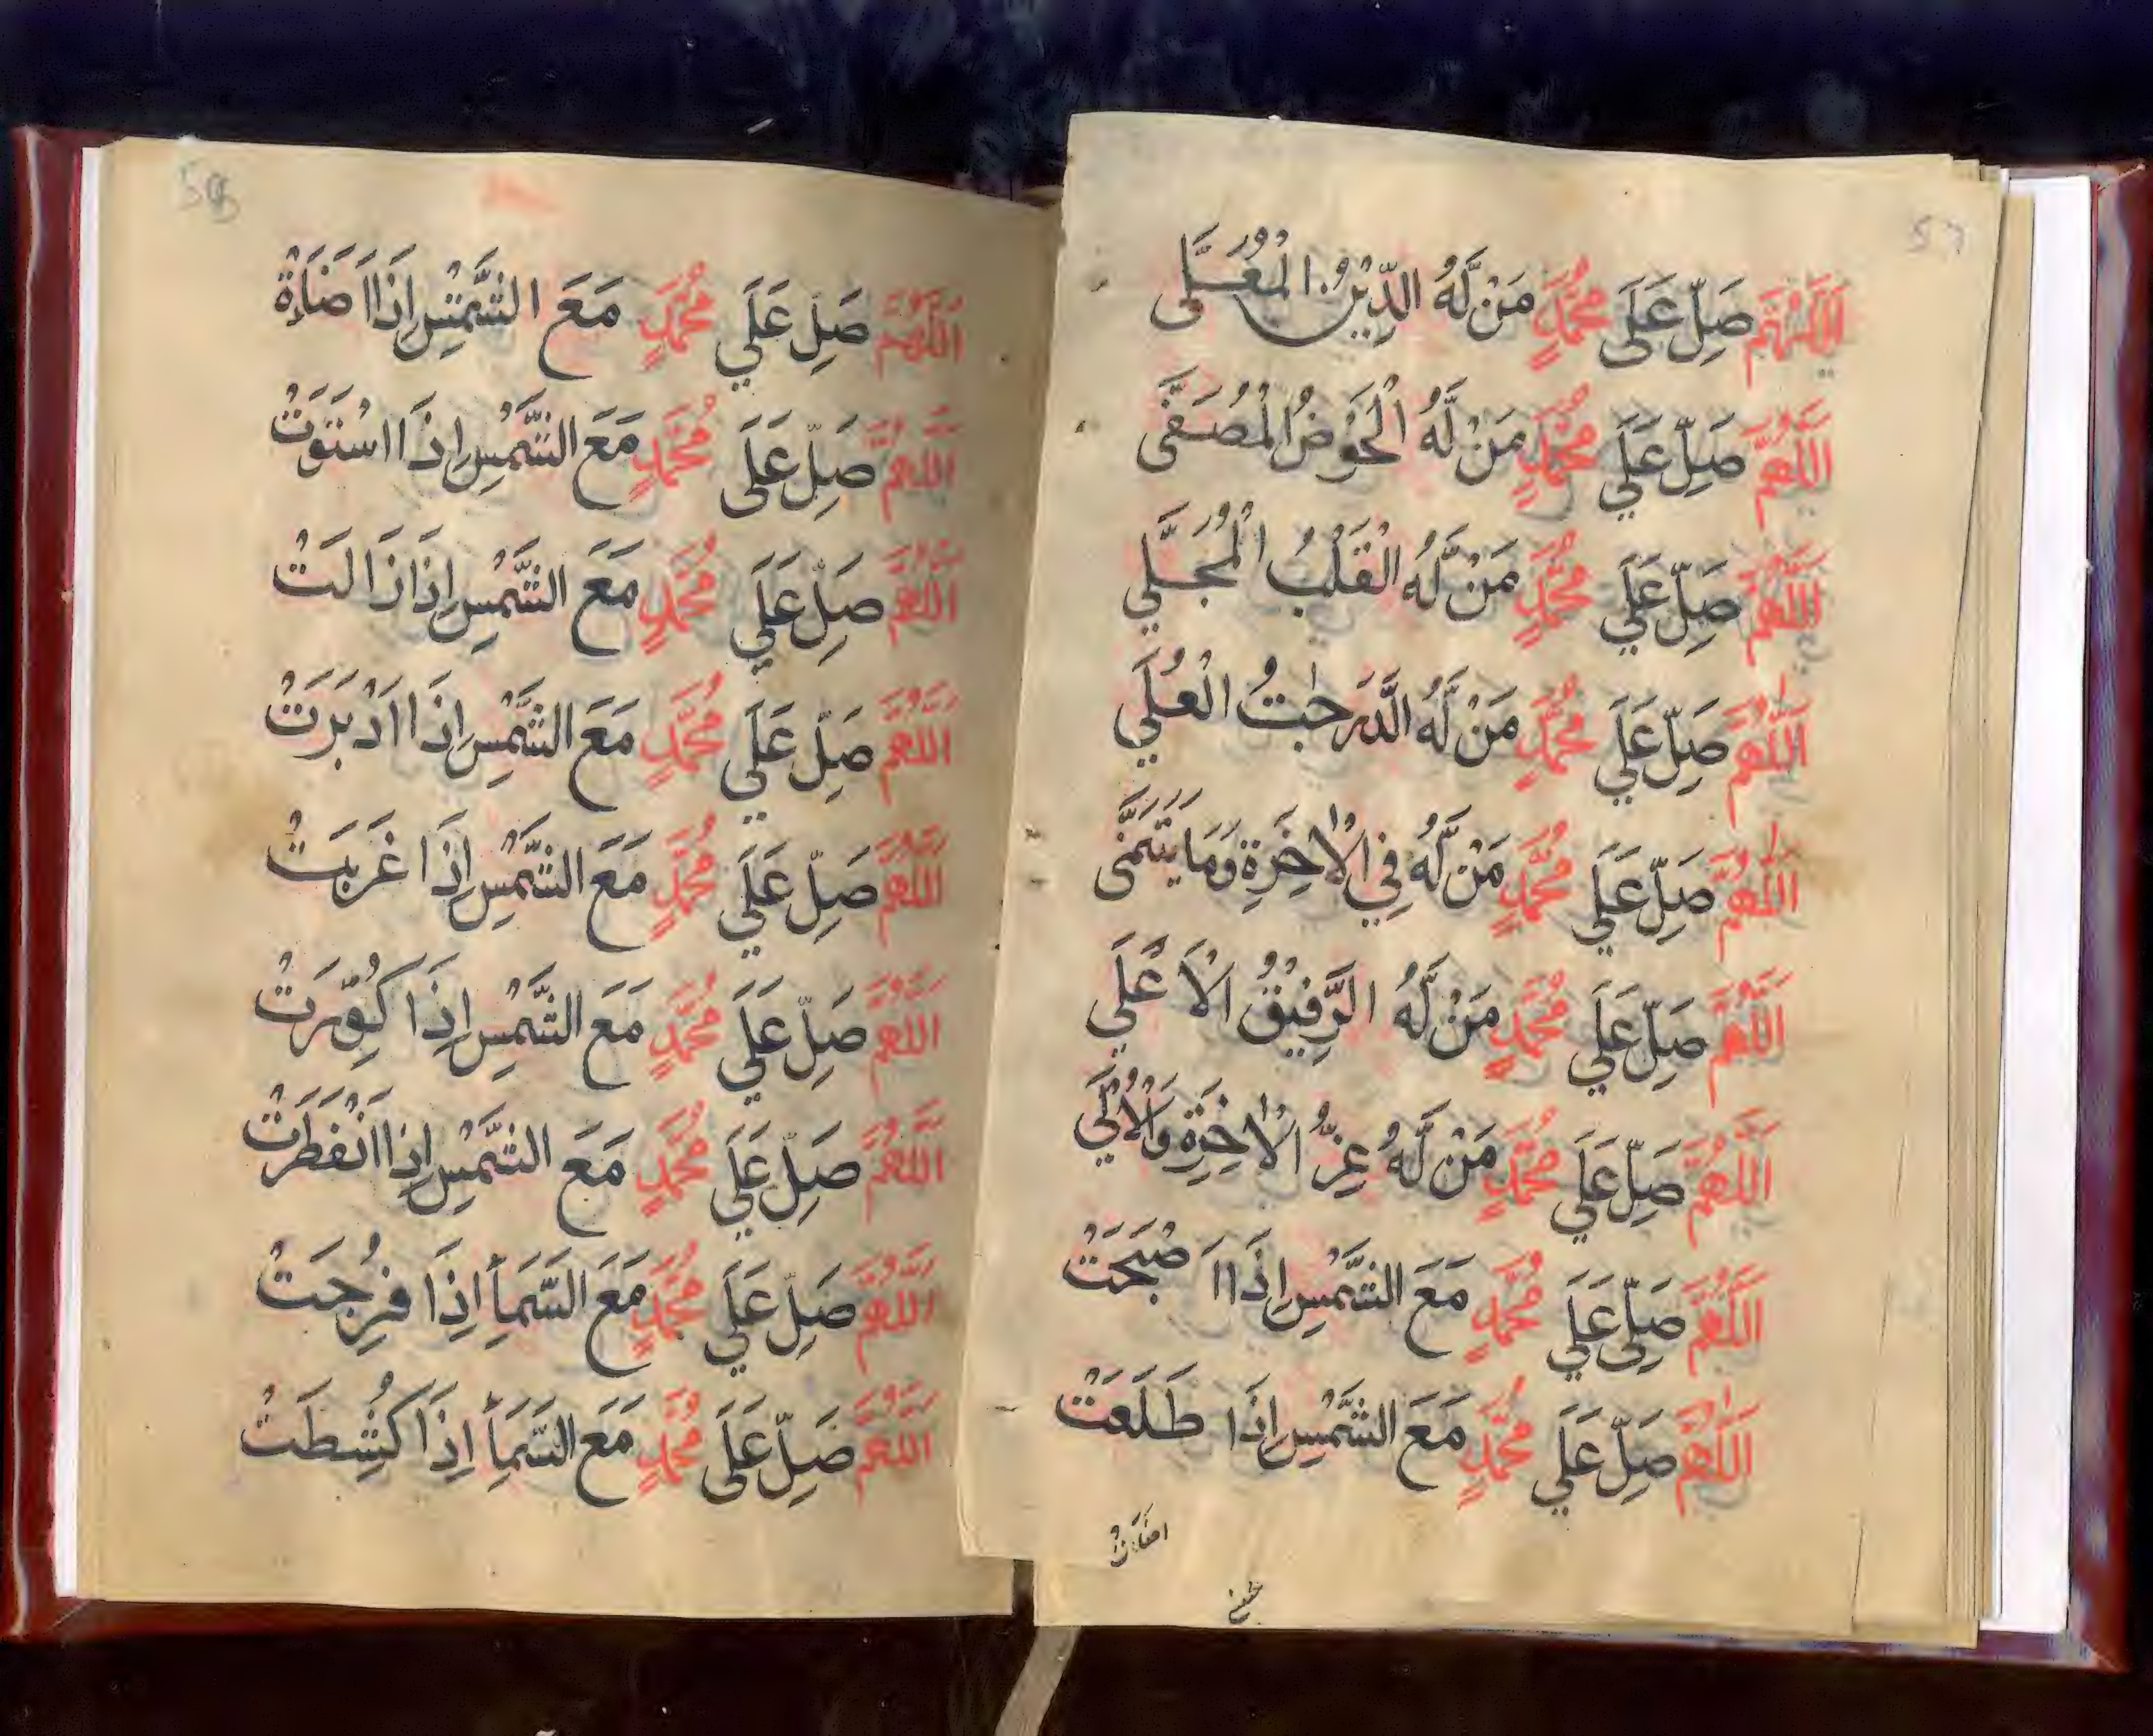 57
اَللّٰهُمَّ صَلِّ عَلَى مُحَمَّدٍ مَنْ لَّهُ الدِّيْنُ الْمُعَلَّى
اَللّٰهُمَّ صَلِّ عَلَي مُحَمَّدٍ مَنْ لَّهُ الْحَوْضُ الْمُصَفَّى
اَللّٰهُمَّ صَلِّ عَلَي مُحَمَّدٍ مَنْ لَّهُ الْقَلْبُ الْمُجَلَّي
اَللّٰهُمَّ صَلِّ عَلَي مُحَمَّدٍ مَنْ لَّهُ الدَّرَجٰتُ الْعُلَي
اَللّٰهُمَّ صَلِّ عَلَي مُحَمَّدٍ مَنْ لَّهُ فِي الْاٰخِرَةِ وَمَا يَتَمَنَّى
اَللّٰهُمَّ صَلِّ عَلَي مُحَمَّدٍ مَنْ لَّهُ الرَّفِيْقُ الْاَعْلَي
اَللّٰهُمَّ صَلِّ عَلَي مُحَمَّدٍ مَنْ لَّهُ عِزُّ الْاٰخِرَةِ وَالْاُوْلَي
اَللّٰهُمَّ صَلِّ عَلَي مُحَمَّدٍ مَعَ الشَّمْسِ اِذَا اَصْبَحَتْ
اَللّٰهُمَّ صَلِّ عَلَي مُحَمَّدٍ مَعَ الشَّمْسِ اِذَا طَلَعَتْ
اَللّٰهُمَّ صَلِّ عَلَي مُحَمَّدٍ مَعَ الشَّمْسِ اِذَا اَضَاءَةْ
اَللّٰهُمَّ صَلِّ عَلَى مُحَمَّدٍ مَعَ الشَّمْسِ اِذَا اسْتَوَتْ
اَللّٰهُمَّ صَلِّ عَلَي مُحَمَّدٍ مَعَ الشَّمْسِ اِذَا زَالَتْ
اَللّٰهُمَّ صَلِّ عَلَي مُحَمَّدٍ مَعَ الشَّمْسِ اِذَا اَدْبَرَتْ
اَللّٰهُمَّ صَلِّ عَلَي مُحَمَّدٍ مَعَ الشَّمْسِ اِذَا غَرَبَتْ
اَللّٰهُمَّ صَلِّ عَلَي مُحَمَّدٍ مَعَ الشَّمْسِ اِذَا كُوِّرَتْ
اَللّٰهُمَّ صَلِّ عَلَي مُحَمَّدٍ مَعَ الشَّمْسِ اِذَا انْفَطَرَتْ
اَللّٰهُمَّ صَلِّ عَلَي مُحَمَّدٍ مَعَ السَّمَأِ اِذَا فُرِجَتْ
اَللّٰهُمَّ صَلِّ عَلَى مُحَمَّدٍ مَعَ السَّمَأِ اِذَا كُشِطَتْ